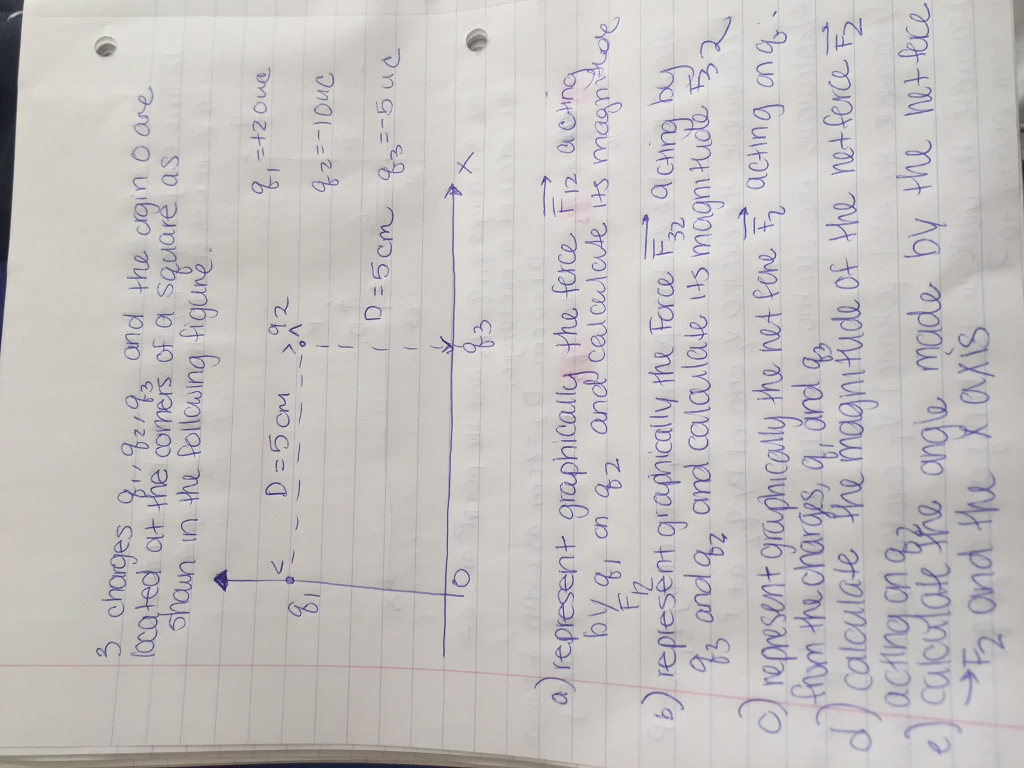 3 charges q1, q2, q3 and the orgin O are
located at the corners of a square as
shown in the following figure.
q1 = +20uc
q2 = -10uc
q3 = -5uc
D = 5cm
q2
q1
D = 5cm
O
q3
X
a) represent graphically the force F12 acting
by q1 on q2 and calculate its magnitude
F12
b) represent graphically the Force F32 acting by
q3 and q2 and calculate its magnitude F32
c) represent graphically the net force F2 acting on q.
from the charges, q1 and q3
d) calculate the magnitude of the net force F2
acting on q2
e) calculate the angle made by the net force
→F2 and the X axis